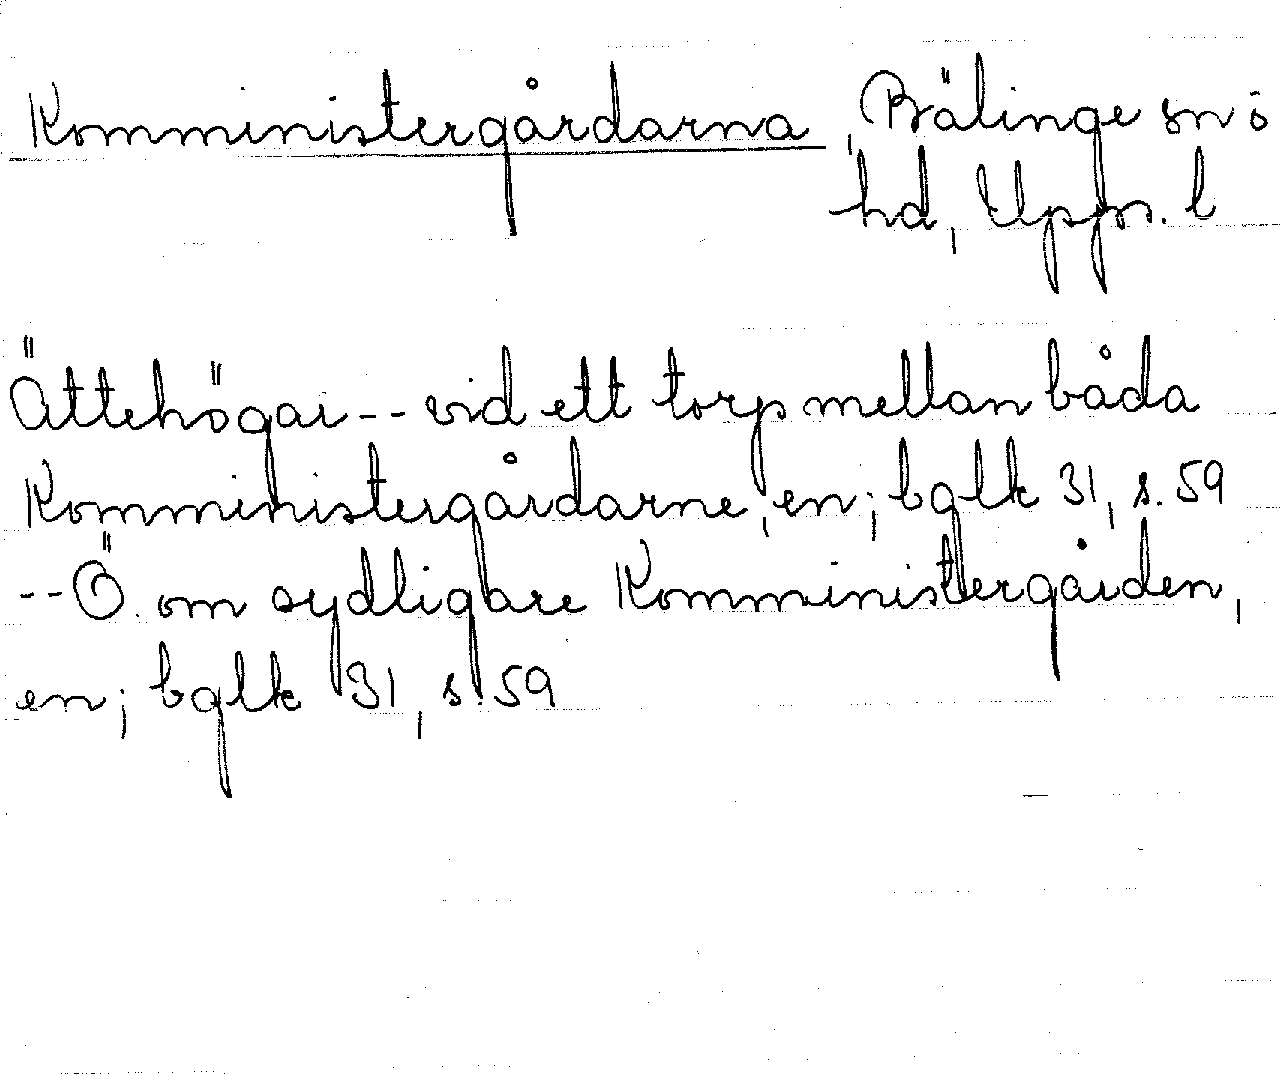 Komministergårdarna, Bälinge sn o
hd, Upps. l
Ättehögar -- vid ett torp mellan båda
Komministergårdarne, en; bglk 31, s. 59
-- Ö. om sydligare Komministergården,
en; bglk 31, s. 59